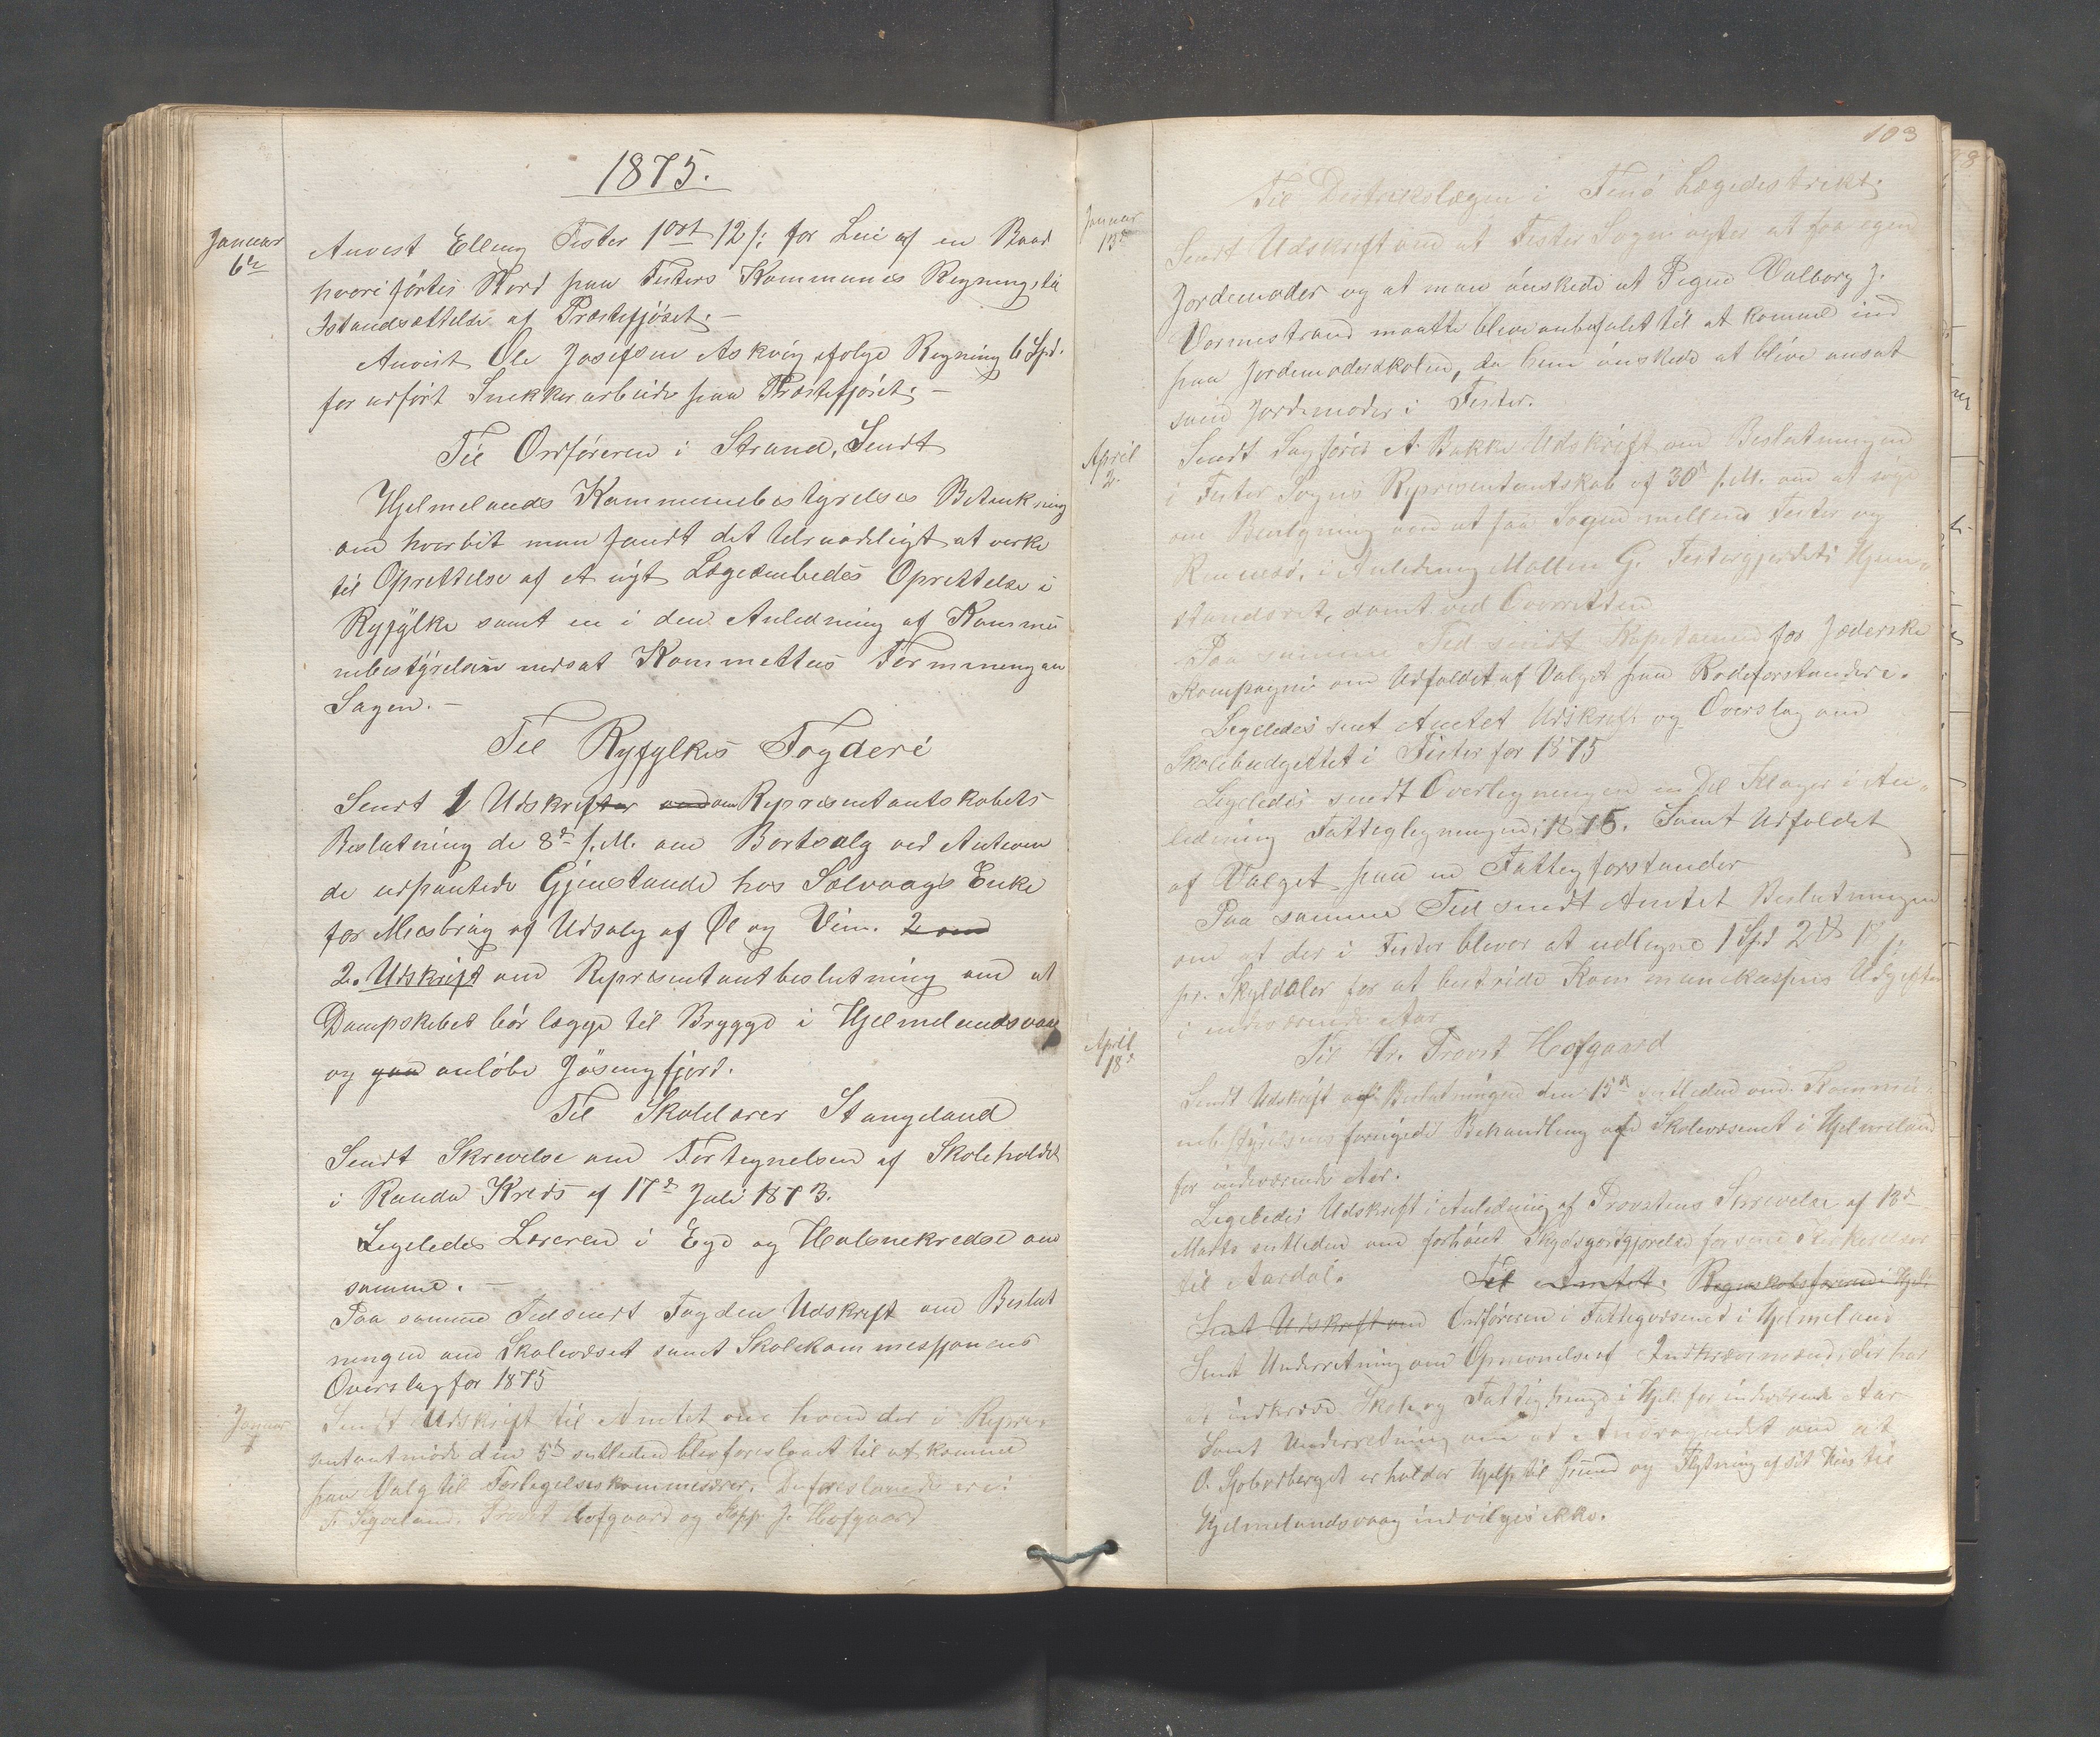 1875.
Januar
6te
Anvist Elling Fister 1 ort 12 s: for Leie af en Baad
hvori förtes Nord paa Fisters Kommunes Regning, til
Istandsættelse af Præstefjöset. —
Anvist Ole Josefsen Askvig ifolge Regning 6 Spd.
for udfört Snekkerarbeide paa Præstefjöset. —
Til Ordföreren i Strand, Sendt
Hjelmelands Kommunebestyrelses Betænkning
om hvorvit man fandt det tilraadeligt at verke
til Oprettelse af et nyt Lægeembedes Oprettelse i
Ryfylke samt en i den Anledning af Kommu
nebestyrelsen nedsat Kommettees Formening om
Sagen. —
Til Ryfylkes Fogderi
Sendt 1 Udskrifter om Representantskabets
Beslutning de 8de f. M. om Bortsalg ved Auktion
de udpantede Gjenstande hos Solvaags Enke
for Misbrug af Udsalg af Øl og Vin. 2 om
2. Udskrift om Representantbeslutning om at
Dampskibet bör lægge til Brygge i Hjelmelandsvaag
og gaa anlöbe Jösengfjord.
Til Skolelærer Stangeland
Sendt Skrevelse om Fortegnelsen af Skoleholdet
i Randa Kreds af 17de Juli 1873.
Legeledes Læreren i Eyd og Halsnekredse om
samme. —
Paa samme Tid sendt Fogden Udskrift om Beslut
ningen om Skolevæsenet samt Skolekommessjonens
Overslag for 1875
Januar
Sendt Udskrift til Amtet om hvem der i Repre-
sentantmöde den 5te sidstleden blev foreslaaet til at komme
paa Valg til Forlegelseskommissærer. De foreslaaede ere:
T. Segveland, Provst Hofgaard og Kapp. J. Hofgaard
103
Til Destrikslægen i Finö Lægedestrikt.
Januar
13de
Sendt Udskrift om at Fister Sogn agter at faa egen
Jordemoder og at man önskede at Pigen Valborg J.
Vormestrand maatte bleve anbefalet til at komme ind
paa Jordemoderskolen, da hun önskede at blive ansat
som Jordemoder i Fister.
April
2.
Sendt Sagförer A. Bakke Udskrift om Beslutningen
i Fister Sogns Representantskab af 30te f. M. om at söge
om Benlygning om at faa Sagen mellem Fister og
Rennesö, i Anledning Mallen G. Festergjerdets Hjem-
standsret, samt ved Overretten
Paa samme Tid sendt Kapetainen for Jæderske
Kompagnie om Udfaldet af Valget paa Rodeforstandere.
Legeledes sent Amtet Udskrift og Overslag om
Skolebudgettet i Fister for 1875
Legeledes sendt Overlegningen en Del Klager i An-
ledning Fatteglegningen i 1875. Samt Udfaldet
af Valget paa en Fattegforstander
Paa samme Tid sendt Amtet Beslutningen
om at der i Fister blever at udlegne 1 Spd 2 
pr. Skyldaler for at bestride Kommunekassens Udgifter
i indeværende Aar
April
18de
Til Hr. Provst Hofgaard
Sendt Udskrift af Beslutningen den 15de sidstleden om Kommu
nebestyrelsens Behandling af Skolevæsenet i Hjelmeland
for indeværende Aar.
Legeledes Udskrift i Anledning af Provstens Skrevelse af 18de
Marts sidstleden om forhöiet Skydsgodtgjorelse for sine 
til Aardal. Til Amtet. Regnskabsföreren i Hjel.
Sent Udskrift om Ordföreren i Fattegvæsenet i Hjelmeland
Sendt Underretning om Opnevnelse af Indkrævermænd, der har
at indkræve Skole og Fattigpenge i Hjel. for indeværende Aar
Samt Underretning om at Andragendet om at
O. erholder Hjelp til Grund og Flytning af sit Hus til
Hjelmelandsvaag indvilges ikke.